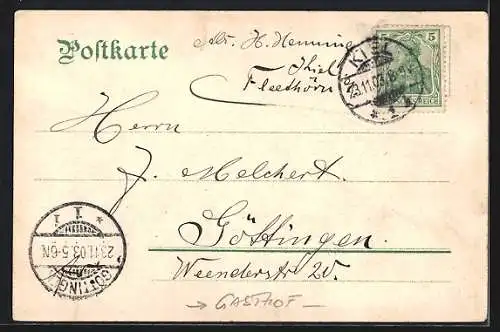 Postkarte
Abs. H. Hemming
Kiel
Fleethörn
5 5
KIEL
23.11.03.
* 1 *
Herrn
J. Melchert.
Göttingen.
Weenderstr.
* 1 1
23.11.03.5-6N
GÖTTINGEN
→ GASTHOF —